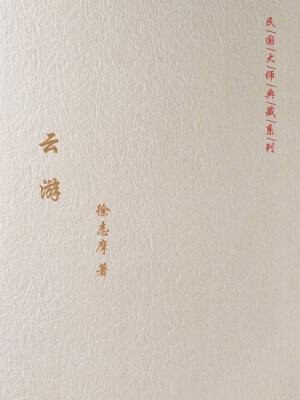 民|国|大|师|典|藏|系|列
云游
徐志摩 著